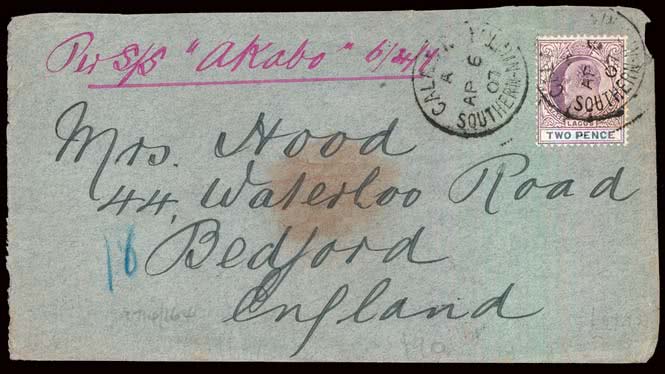 Per S/S "Akabo" 6/4/7
CALABAR
A
AP 6
07
SOUTHERN-NI
AP
07
SOUTHERN
LAGOS
TWO PENCE
Mrs. Hood
44, Waterloo Road
Bedford
England
18